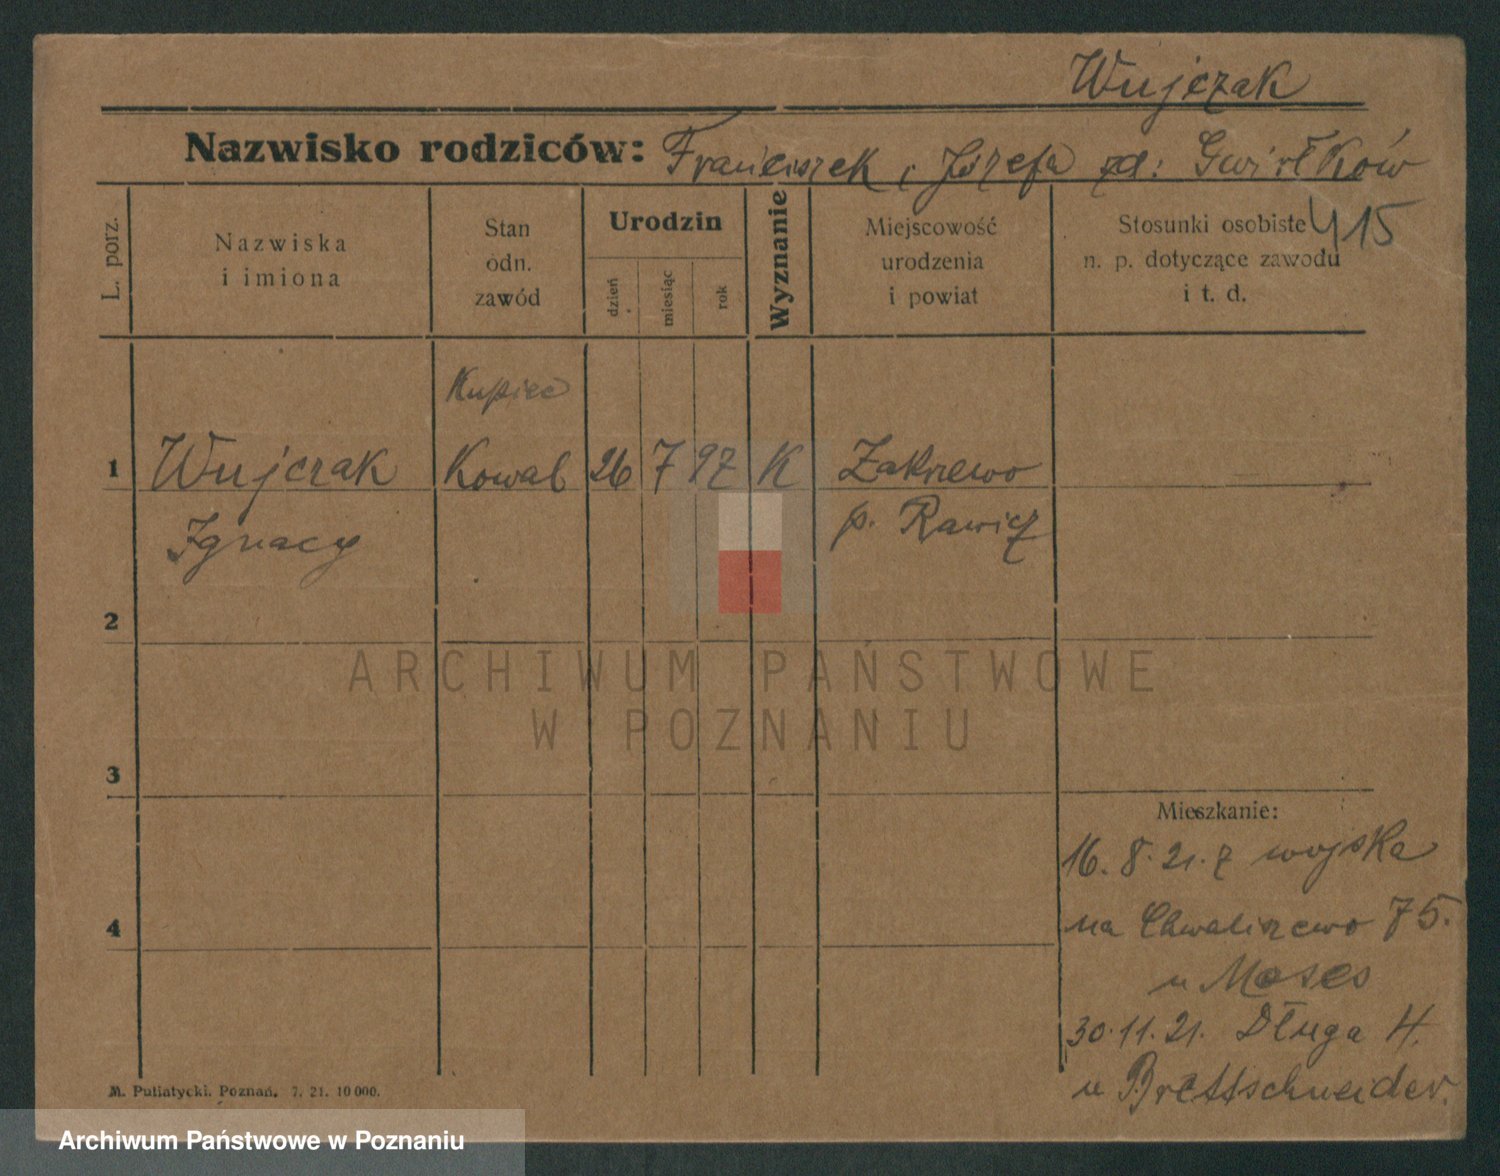 Wujczak
Nazwisko rodziców: Franciszek i Józefa zd:
415
L. porz.
Nazwiska
i imiona
Stan
odn.
zawód
Urodzin
dzień
miesiąc
rok
Wyznanie
Miejscowość
urodzenia
i powiat
Stosunki osobiste
n. p. dotyczące zawodu
i t. d.
Kupiec
1 Wujczak Kowal 26 7 97 K Zakrzewo
Ignacy p. Rawicz
2
ARCHIWUM PAŃSTWOWE
W POZNANIU
3
Mieszkanie:
16. 8. 21. z wojska
4
na Chwaliszewo 75.
u Moses
30. 11. 21. Długa 4.
u Brettschneider.
M. Putiatycki, Poznań. 7. 21. 10 000.
Archiwum Państwowe w Poznaniu